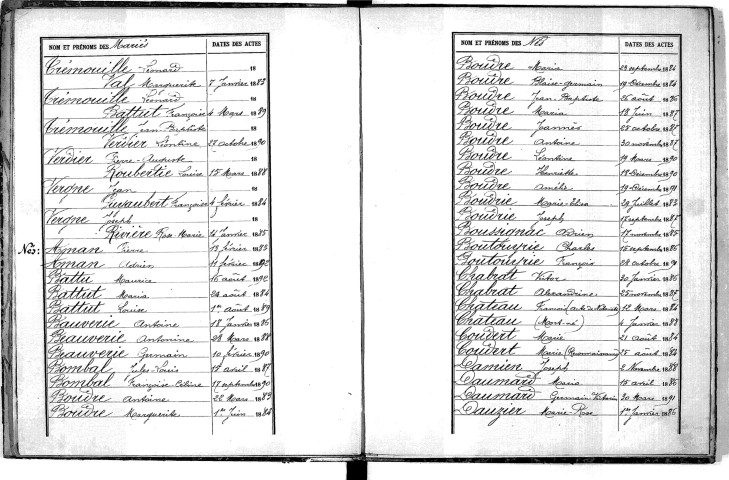 NOM ET PRÉNOMS DES Mariés DATES DES ACTES
Trémouille Léonard 18
Val Marguerite 7 Janvier 1883
Trémouille Léonard 18
Battut Françoise 4 Mars 1889
Trémouille Jean-Baptiste 18
Verdier Léontine 27 octobre 1890
Verdier Pierre-Auguste 18
Roubertie Louise 15 Mars 1888
Vergne Jean 18
Puyaubert Françoise 4 février 1884
Vergne Joseph 18
Rivière Rose Marie 1885
Nés:
Aman Pierre 13 février 1883
Aman Adrien 11 février 1892
Battu Maurice 16 août 1892
Battut Maria 24 août 1884
Battut Louise 1er Août 1889
Beauverie Antoine 18 Janvier 1886
Beauverie Antonine 28 Mars 1888
Beauverie Germain 10 février 1890
Bombal Jules-Louis 15 avril 1887
Bombal Françoise Céline 17 septembre 1890
Boudre Antoine 22 Mars 1883
Boudre Marguerite 1er Juin 1883
NOM ET PRÉNOMS DES Nés DATES DES ACTES
Boudre Maria 28 septembre 1884
Boudre Blaise-Germain 19 Décembre 1884
Boudre Jean-Baptiste 26 août 1886
Boudre Maria 18 Juin 1887
Boudre Jeannès 28 octobre 1887
Boudre Antoine 20 novembre 1887
Boudre Léontine 19 Mars 1890
Boudre Henriette 18 Décembre 1890
Boudre Amélie 19 Décembre 1891
Boudrie Marie-Elisa 29 Juillet 1883
Boudrie Joseph 15 septembre 1885
Boussignac Adrien 17 novembre 1885
Boutouyrie Charles 15 septembre 1886
Boutouyrie François 28 octobre 1891
Chabrat Victor 20 Janvier 1886
Chabrat Alexandrine 25 novembre 1887
Chateau François (acte de Notoriété) 12 Mars 1884
Chateau (Mort-né) 4 Janvier 1888
Coudert Marie 21 août 1884
Coudert Marie (Reconnaissance) 25 août 1884
Damien Joseph 2 Novembre 1888
Daumard Maria 15 avril 1886
Daumard Germain Victorin 20 Mars 1891
Dauzier Marie-Rose 1er Janvier 1886